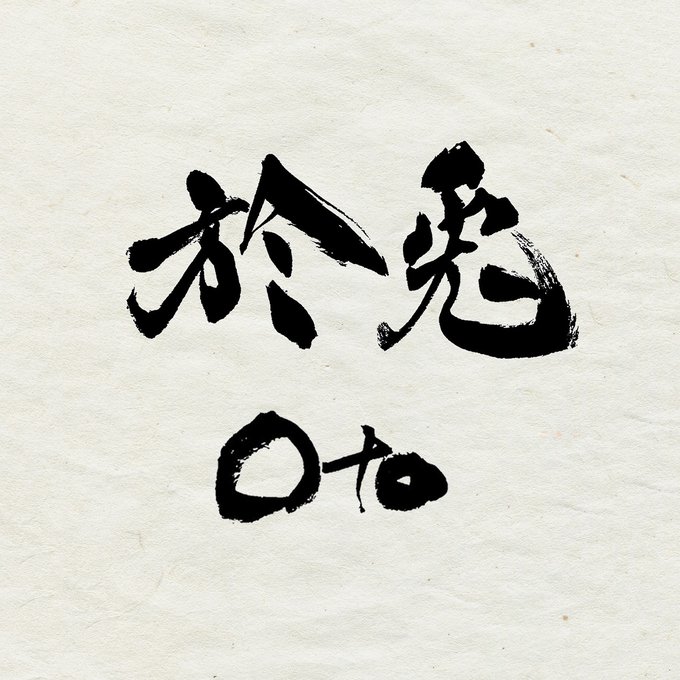 於兎
Oto